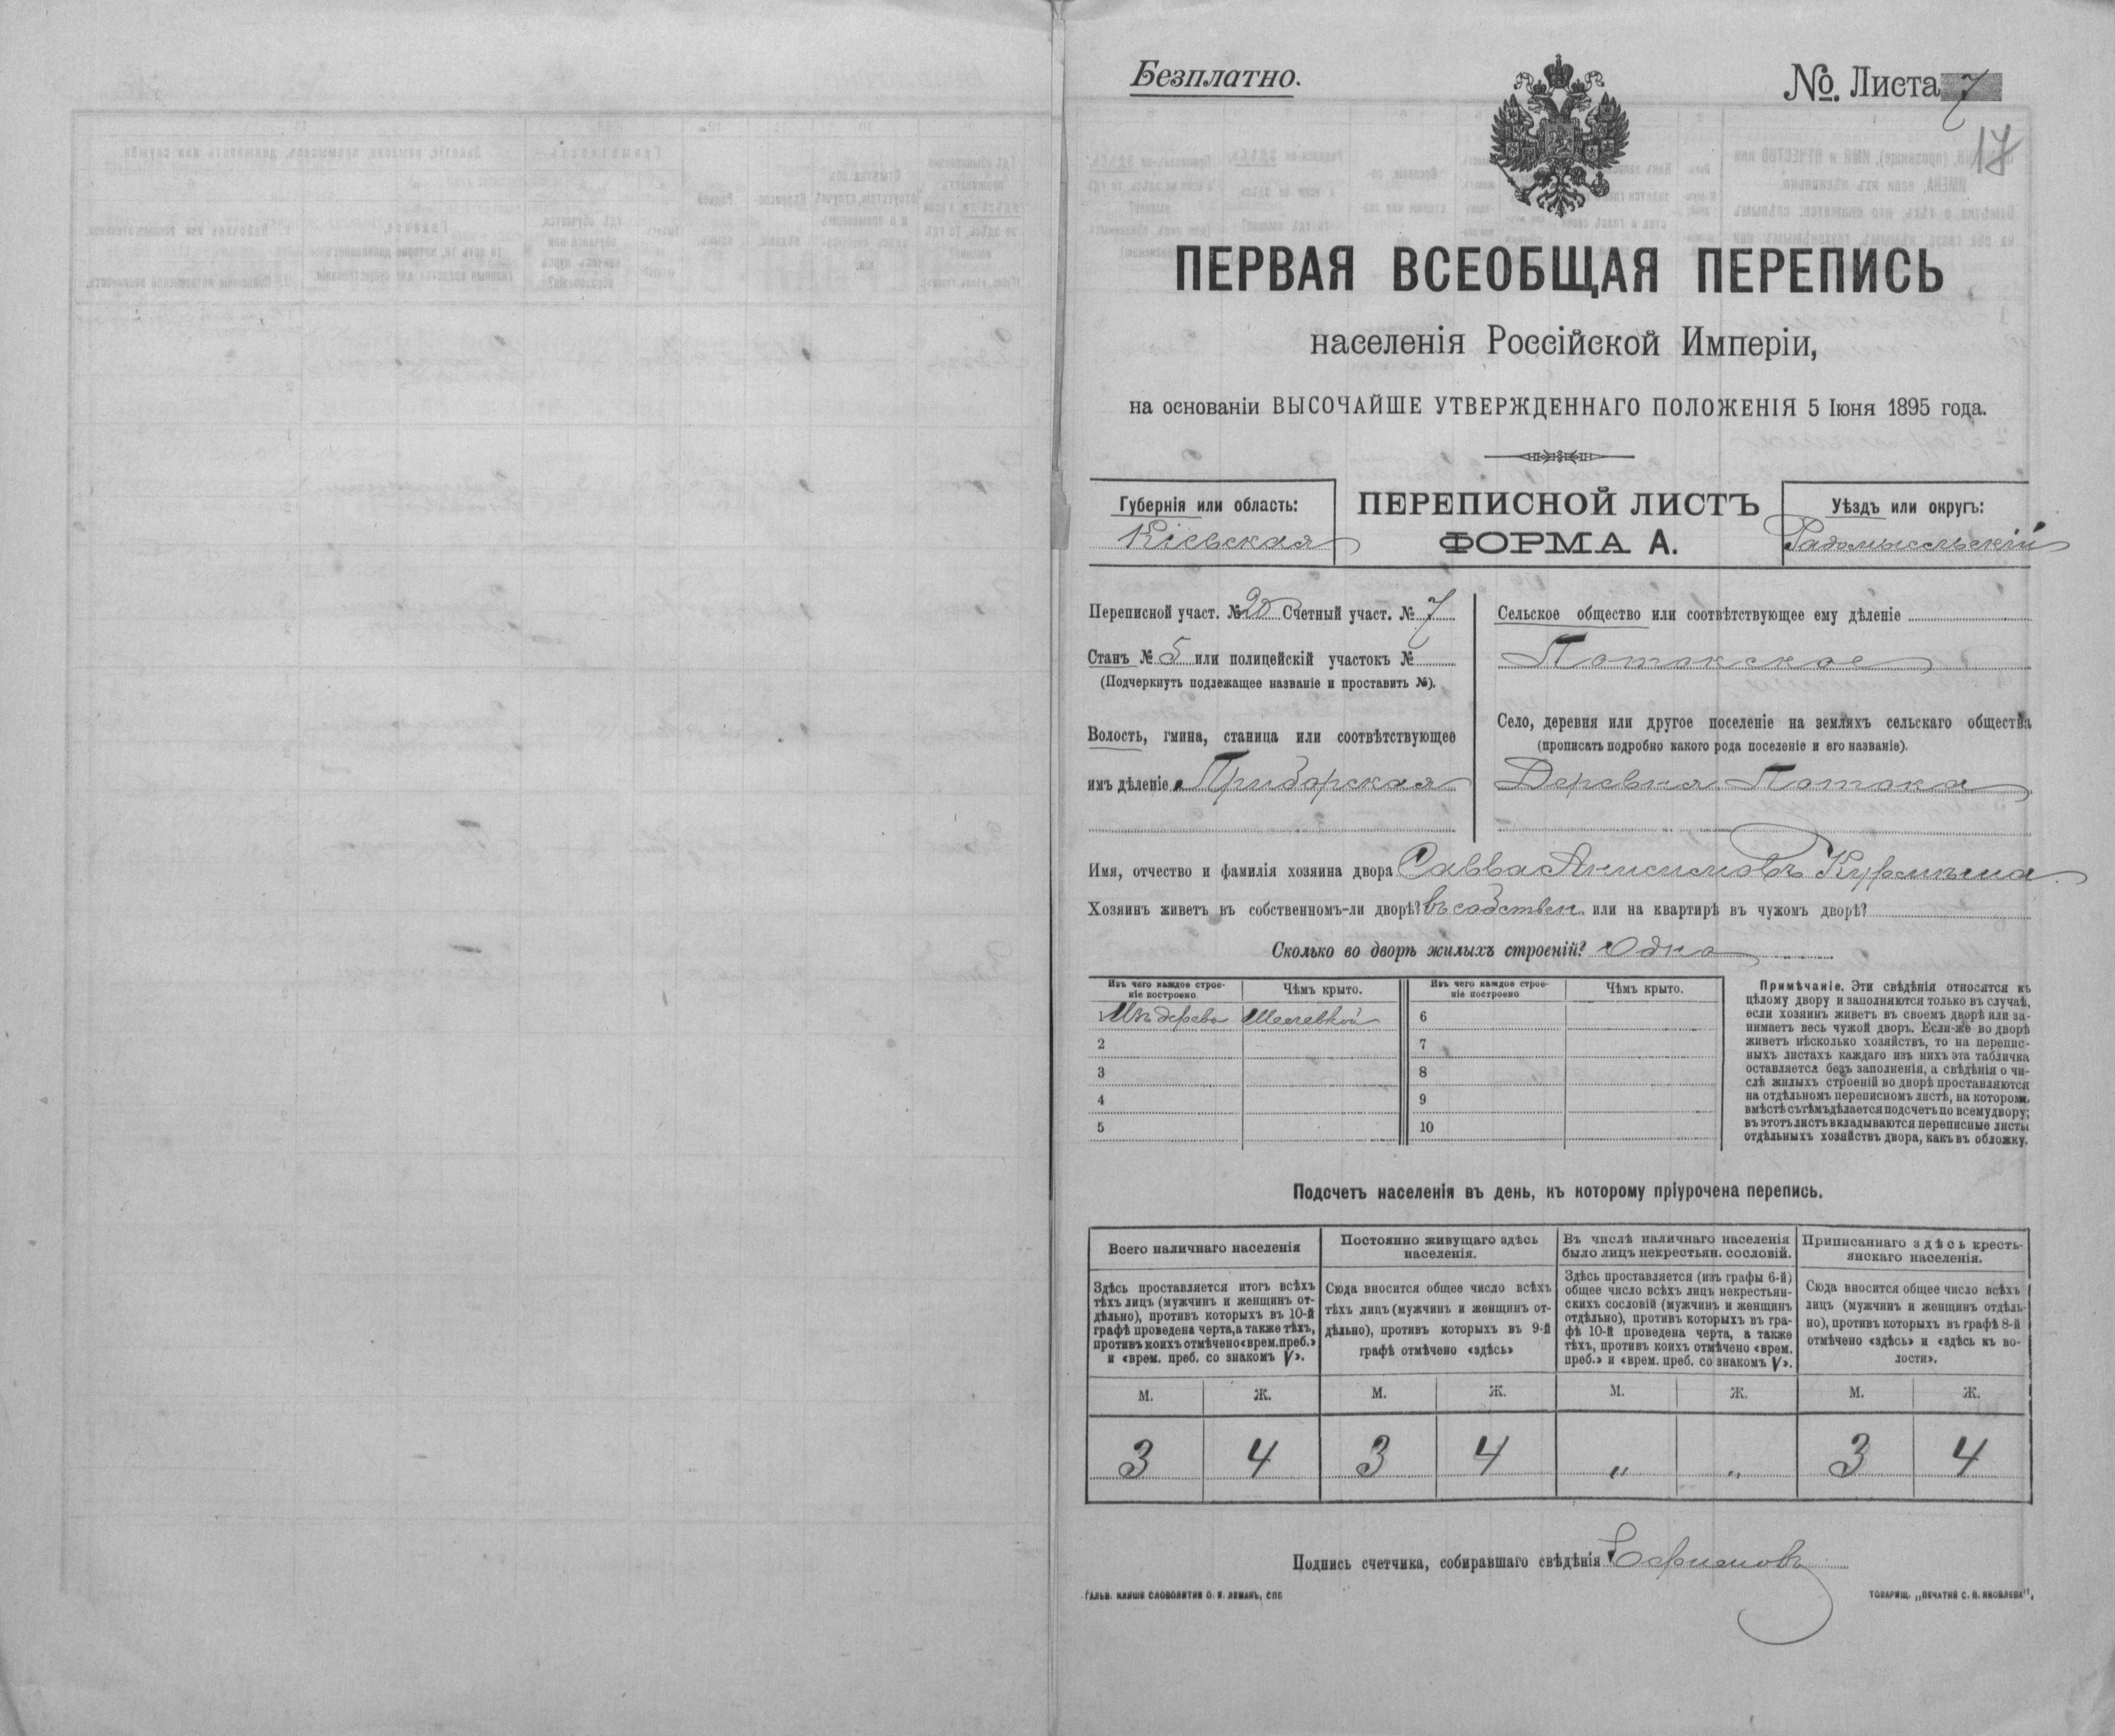 Безплатно.
№. Листа 7
17
ПЕРВАЯ ВСЕОБЩАЯ ПЕРЕПИСЬ
населенія Россійской Имперіи,
на основаніи ВЫСОЧАЙШЕ УТВЕРЖДЕННАГО ПОЛОЖЕНІЯ 5 Іюня 1895 года.
Губернія или область:
Кіевская
ПЕРЕПИСНОЙ ЛИСТЪ
ФОРМА А.
Уѣздъ или округъ:
Радомысльскій
Переписной участ. № 20 Счетный участ. № 7
Станъ № 5 или полицейскій участокъ №
(Подчеркнуть подлежащее названіе и проставить №).
Волость, гмина, станица или соотвѣтствующее
имъ дѣленіе Приборская
Сельское общество или соотвѣтствующее ему дѣленіе
Потокское
Село, деревня или другое поселеніе на земляхъ сельскаго общества
(прописать подробно какого рода поселеніе и его названіе).
Деревня Потока
Имя, отчество и фамилія хозяина двора Савва Анисимовъ
Хозяинъ живетъ въ собственномъ-ли дворѣ? въ собствен или на квартирѣ въ чужомъ дворѣ?
Сколько во дворѣ жилыхъ строеній? Одно
Изъ чего каждое строе-
ніе построено.
Чѣмъ крыто.
Изъ чего каждое строе-
ніе построено
Чѣмъ крыто.
1 Изъ дерева Шелевкой
2
3
4
5
6
7
8
9
10
Примѣчаніе. Эти свѣдѣнія относятся къ
цѣлому двору и заполняются только въ случаѣ,
если хозяинъ живетъ въ своемъ дворѣ или за-
нимаетъ весь чужой дворъ. Если-же во дворѣ
живетъ нѣсколько хозяйствъ, то на перепис-
ныхъ листахъ каждаго изъ нихъ эта табличка
оставляется безъ заполненія, а свѣдѣнія о чи-
слѣ жилыхъ строеній во дворѣ проставляются
на отдѣльномъ переписномъ листѣ, на которомъ
вмѣстѣ съ тѣмъ дѣлается подсчетъ по всему двору;
въ этотъ листъ вкладываются переписные листы
отдѣльныхъ хозяйствъ двора, какъ въ обложку.
Подсчетъ населенія въ день, къ которому пріурочена перепись.
Всего наличнаго населенія
Здѣсь проставляется итогъ всѣхъ
тѣхъ лицъ (мужчинъ и женщинъ от-
дѣльно), противъ которыхъ въ 10-й
графѣ проведена черта, а также тѣхъ,
противъ коихъ отмѣчено «врем. преб.»
и «врем. преб. со знакомъ V».
Постоянно живущаго здѣсь
населенія.
Сюда вносится общее число всѣхъ
тѣхъ лицъ (мужчинъ и женщинъ от-
дѣльно), противъ которыхъ въ 9-й
графѣ отмѣчено «здѣсь»
Въ числѣ наличнаго населенія
было лицъ некрестьян. сословій.
Здѣсь проставляется (изъ графы 6-й)
общее число всѣхъ лицъ некрестьян-
скихъ сословій (мужчинъ и женщинъ
отдѣльно), противъ которыхъ въ гра-
фѣ 10-й проведена черта, а также
тѣхъ, противъ коихъ отмѣчено «врем.
преб.» и «врем. преб. со знакомъ V».
Приписаннаго здѣсь кресть-
янскаго населенія.
Сюда вносится общее число всѣхъ
лицъ (мужчинъ и женщинъ отдѣль-
но), противъ которыхъ въ графѣ 8-й
отмѣчено «здѣсь» и «здѣсь къ во-
лости».
М. Ж. М. Ж. М. Ж. М. Ж.
3 4 3 4 „ „ 3 4
Подпись счетчика, собиравшаго свѣдѣнія
ГАЛЬВ. КЛИШЕ СЛОВОЛИТНИ О. И. ЛЕМАНЪ, СПБ
ТОВАРИЩ. „ПЕЧАТНЯ С. П. ЯКОВЛЕВА",